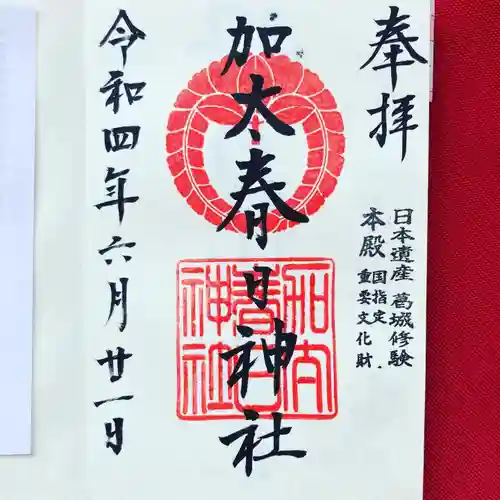 奉拝
日本遺産 葛城修験
本殿 国指定重要文化財.
加太春日神社
加太春日神社
令和四年六月廿一日